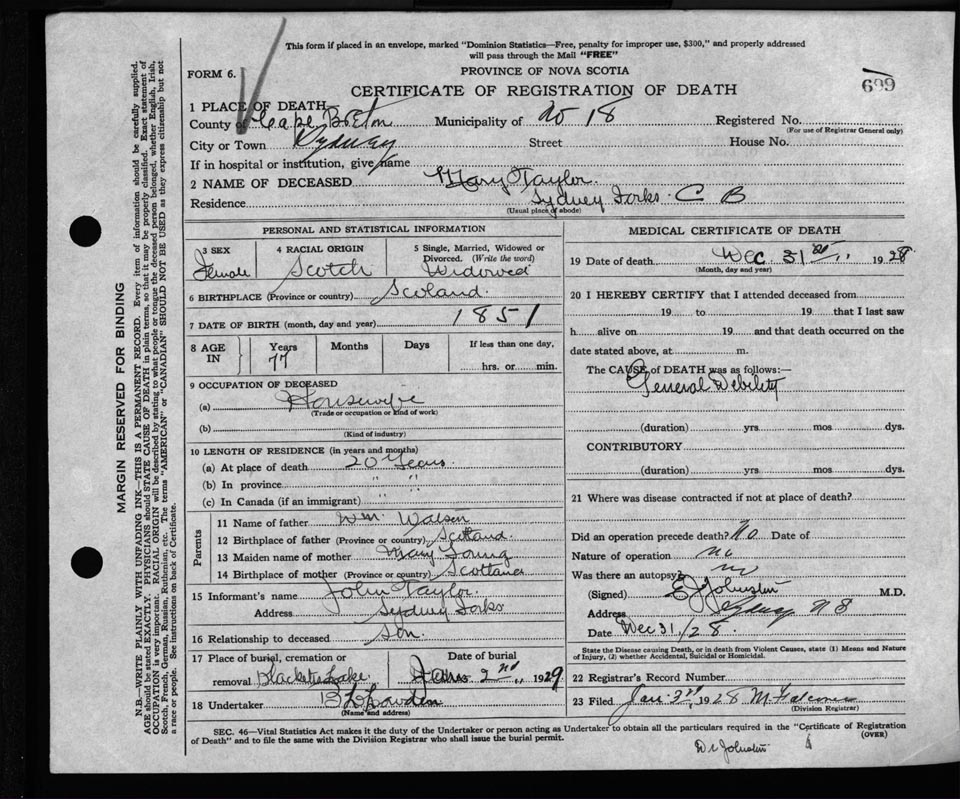 This form if placed in an envelope, marked "Dominion Statistics—Free, penalty for improper use, $300," and properly addressed
will pass through the Mail "FREE"
FORM 6.
PROVINCE OF NOVA SCOTIA
699
CERTIFICATE OF REGISTRATION OF DEATH
1 PLACE OF DEATH
County of Cape Breton Municipality of No 18 Registered No.
(For use of Registrar General only)
City or Town Sydney Street House No.
If in hospital or institution, give name
2 NAME OF DECEASED Mary Taylor
Residence Sydney Forks C B
(Usual place of abode)
PERSONAL AND STATISTICAL INFORMATION
3 SEX Female
4 RACIAL ORIGIN Scotch
5 Single, Married, Widowed or Divorced. (Write the word) Widowed
6 BIRTHPLACE (Province or country) Scoland
7 DATE OF BIRTH (month, day and year) 1851
8 AGE IN Years 77 Months Days If less than one day, hrs. or min.
9 OCCUPATION OF DECEASED
(a) Housewife
(Trade or occupation or kind of work)
(b)
(Kind of industry)
10 LENGTH OF RESIDENCE (in years and months)
(a) At place of death 20 Years
(b) In province " "
(c) In Canada (if an immigrant) " "
Parents
11 Name of father Wm. Watson
12 Birthplace of father (Province or country) Scotland
13 Maiden name of mother Mary Young
14 Birthplace of mother (Province or country) Scotland
15 Informant's name John Taylor
Address Sydney Forks
16 Relationship to deceased Son.
17 Place of burial, cremation or removal Blacketts Lake
Date of burial Jan 2nd, 1929
18 Undertaker
(Name and address)
MEDICAL CERTIFICATE OF DEATH
19 Date of death Dec. 31st, 1928
(Month, day and year)
20 I HEREBY CERTIFY that I attended deceased from
19 to 19 that I last saw
h alive on 19 and that death occurred on
date stated above, at m.
The CAUSE of DEATH was as follows:
General Debility
(duration) yrs mos dys.
CONTRIBUTORY
(duration) yrs mos dys.
21 Where was disease contracted if not at place of death?
Did an operation precede death? No Date of
Nature of operation no
Was there an autopsy? no
(Signed) E J Johnstin M.D.
Address Sydney N S
Date Dec 31/28.
State the Disease causing Death, or in death from Violent Causes, state (1) Means and Nature
of Injury, (2) whether Accidental, Suicidal or Homicidal.
22 Registrar's Record Number
23 Filed Jan 2nd, 1928 M Falconer
(Division Registrar)
SEC. 46—Vital Statistics Act makes it the duty of the Undertaker or person acting as Undertaker to obtain all the particulars required in the "Certificate of Registration
of Death" and to file the same with the Division Registrar who shall issue the burial permit.
(OVER)
Dr Johnstin
MARGIN RESERVED FOR BINDING
N.B.—WRITE PLAINLY WITH UNFADING INK—THIS IS A PERMANENT RECORD. Every item of information should be carefully supplied.
AGE should be stated EXACTLY. PHYSICIANS should STATE CAUSE OF DEATH in plain terms, so that it may be properly classified. Exact statement of
OCCUPATION is very important. RACIAL ORIGIN will be described by stating to what people or tongue the deceased person belonged, whether English, Irish,
Scotch, French, German, Russian, Ruthenian, etc. The terms "AMERICAN" or "CANADIAN" SHOULD NOT BE USED as they express citizenship but not
a race or people. See instructions on back of Certificate.